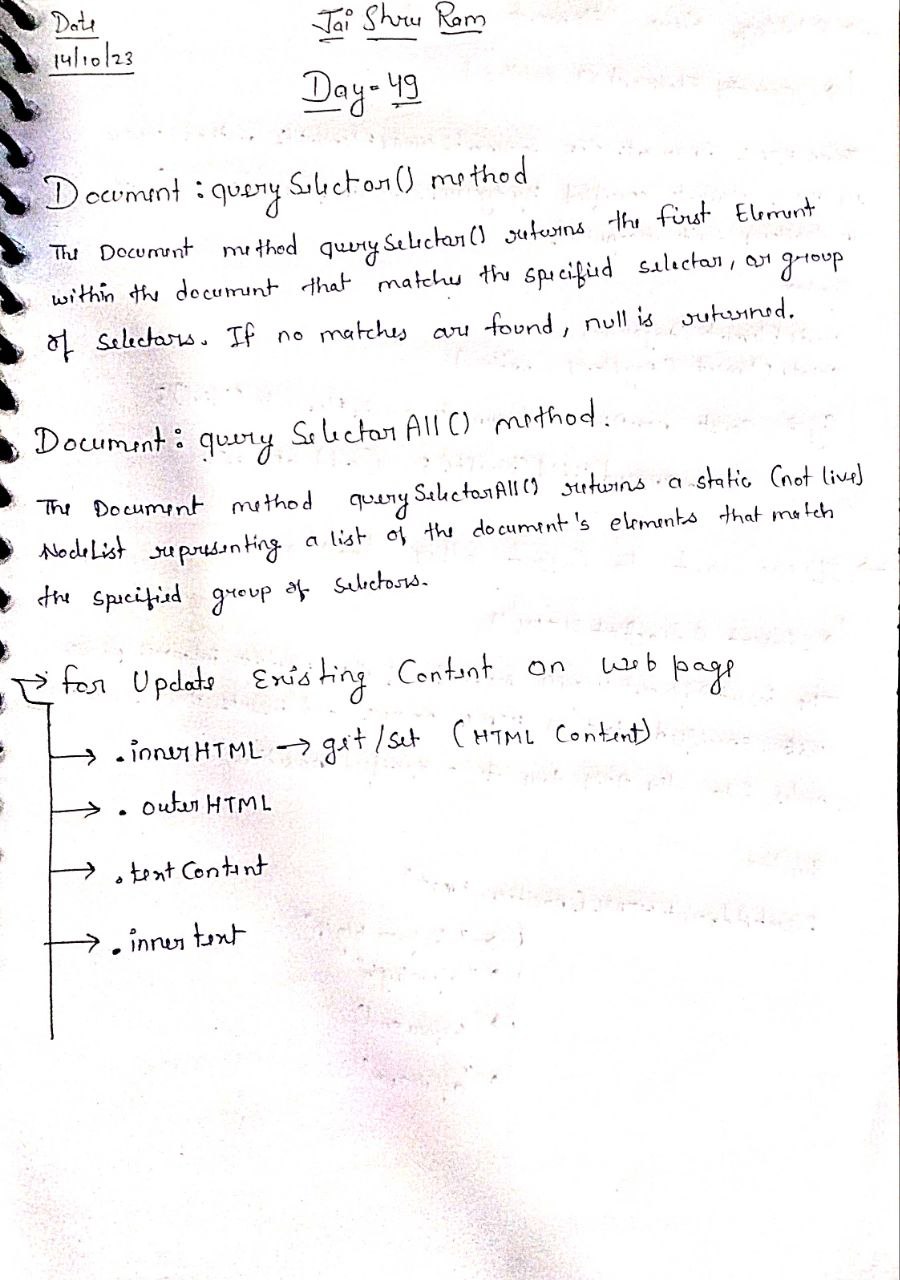 Date
14/10/23
Jai Shree Ram
Day-49
Document : querySelector() method
The Document method querySelector() returns the first Element
within the document that matches the specified selector, or group
of selectors. If no matches are found, null is returned.
Document : querySelectorAll() method.
The Document method querySelectorAll() returns a static (not live)
NodeList representing a list of the document's elements that match
the specified group of selectors.
→ for Update Existing Content on web page
→ .innerHTML → get/set (HTML Content)
→ .outerHTML
→ .textContent
→ .innertext